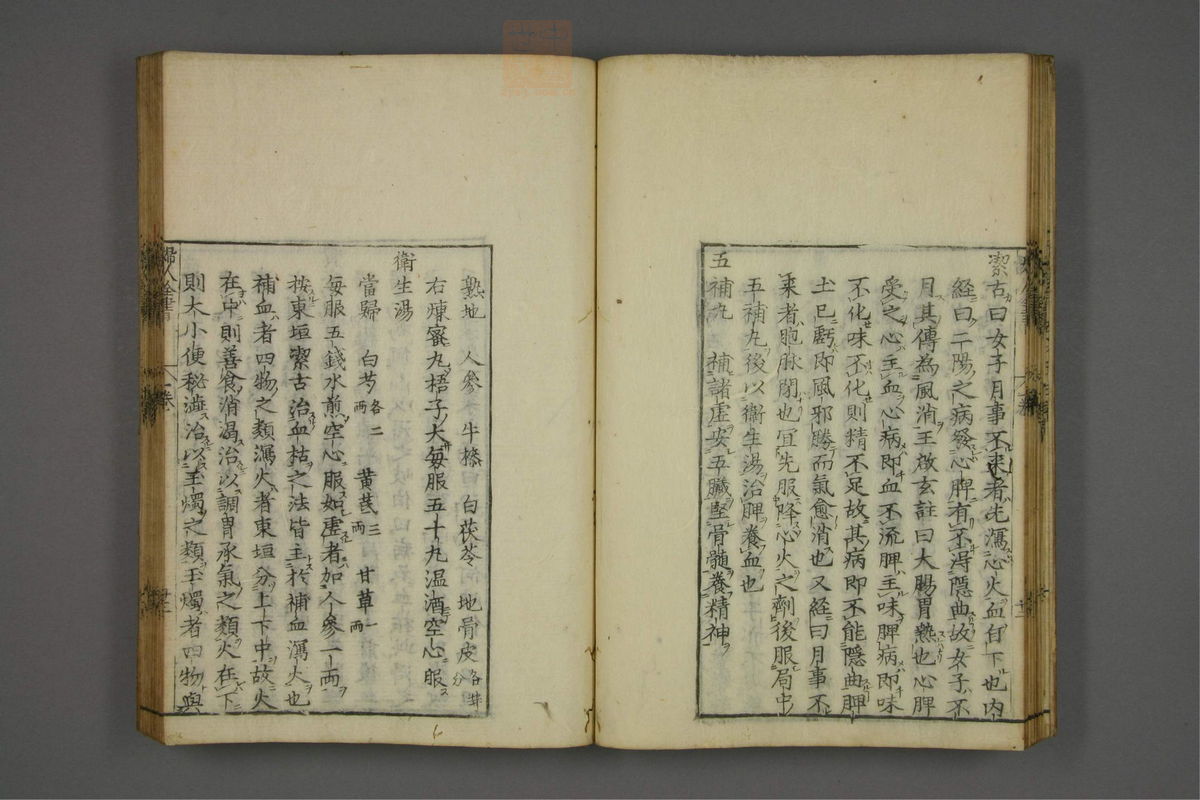 潔古曰女子月事不來者先瀉心火血自下也内
經曰二陽之病發心脾有不得隱曲故女子不
月其傳為風消王啟玄註曰大腸胃熱也心脾
受之心主血心病即血不流脾主味脾病即味
不化味不化則精不足故其病即不能隱曲脾
土已虧即風邪勝而氣愈消也又經曰月事不
来者胞脉閉也宜先服降心火之劑後服局中
五補丸後以衛生湯治脾養血也
五補丸 補諸虛安五臟堅骨髓養精神
熟地 人參 牛膝 白茯苓 地骨皮各等分
右煉蜜丸梧子大每服五十丸温酒空心服
衛生湯
當歸 白芍各二两 黄芪三两 甘草一两
每服五錢水煎空心服如虛者加人參一两
按東垣潔古治血枯之法皆主於補血瀉火也
補血者四物之類瀉火者東垣分上下中故火
在中則善食消渴治以調胃承氣之類火在下
則大小便秘澁治以玉燭之類玉燭者四物與
婦人全書